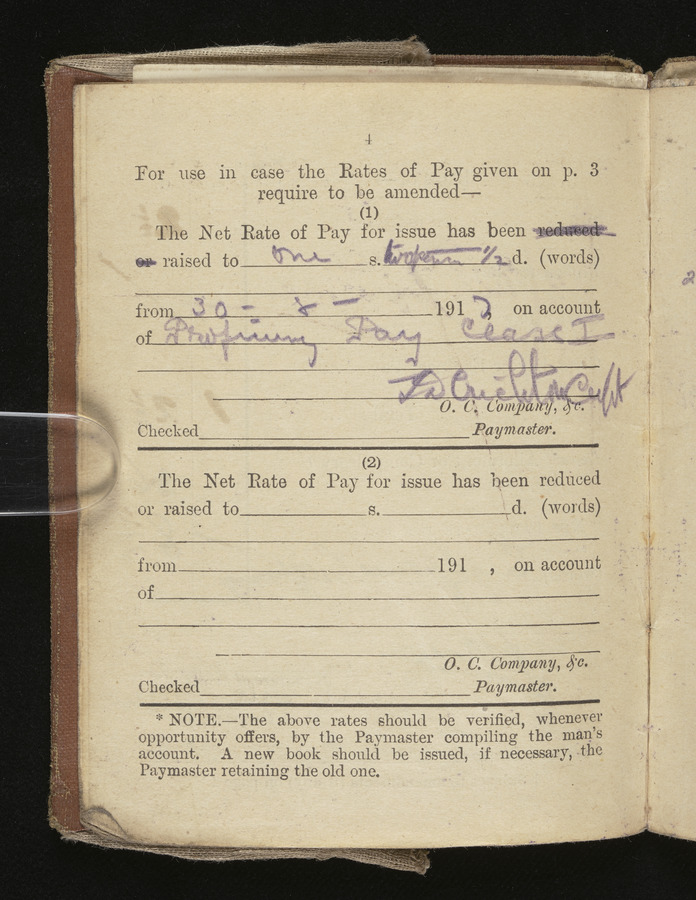 4
For use in case the Rates of Pay given on p. 3
require to be amended—
(1)
The Net Rate of Pay for issue has been reduced
or raised to one s. twopence 1/2 d. (words)
from 30 - 8 - 1917, on account
of Proficiency Pay Class I
Crichton Capt
O. C. Company, &c.
Checked Paymaster.
(2)
The Net Rate of Pay for issue has been reduced
or raised to s. d. (words)
from 191 , on account
of
O. C. Company, &c.
Checked Paymaster.
* NOTE.—The above rates should be verified, whenever
opportunity offers, by the Paymaster compiling the man's
account. A new book should be issued, if necessary, the
Paymaster retaining the old one.
2